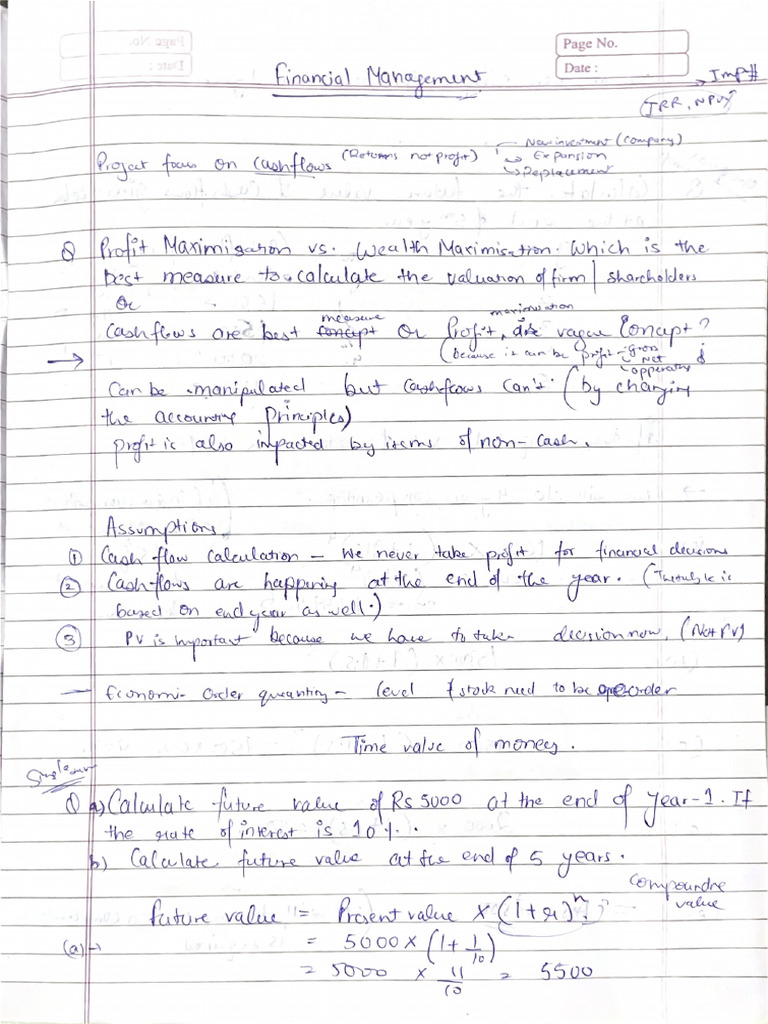 Page No.
Date :
Financial Management
→ Imp#
(IRR, NPV)
Project focus on cashflows (Returns not profit)
New investment (company)
→ Expansion
→ Replacement
Q Profit Maximisation vs. Wealth Maximisation. Which is the
best measure to calculate the valuation of firm / shareholders
Or
measure maximisation
Cashflows are best concept or Profit, are vague Concept?
(because it can be profit - gross
Net
opperating
→ &
Can be manipulated but Cashflows Can't. (by changing
the accounting Principles)
profit is also impacted by items of non-cash.
Assumptions
① Cash flow calculation – We never take profit for financial decisions
② Cashflows are happening at the end of the year. (Interest is
based on end year as well.)
③ PV is important because we have to take decision now. (Not FV)
— Economic Order quantity – level of stock need to be reorder
Time value of money.
Single sum
Q a) Calculate future value of Rs 5000 at the end of Year-1. If
the rate of interest is 10%.
b) Calculate future value at the end of 5 years.
Compounding
value
Future value = Present value × [(1+r)ⁿ]
(a) → = 5000 × (1 + 1/10)
= 5000 × 11/10 = 5500